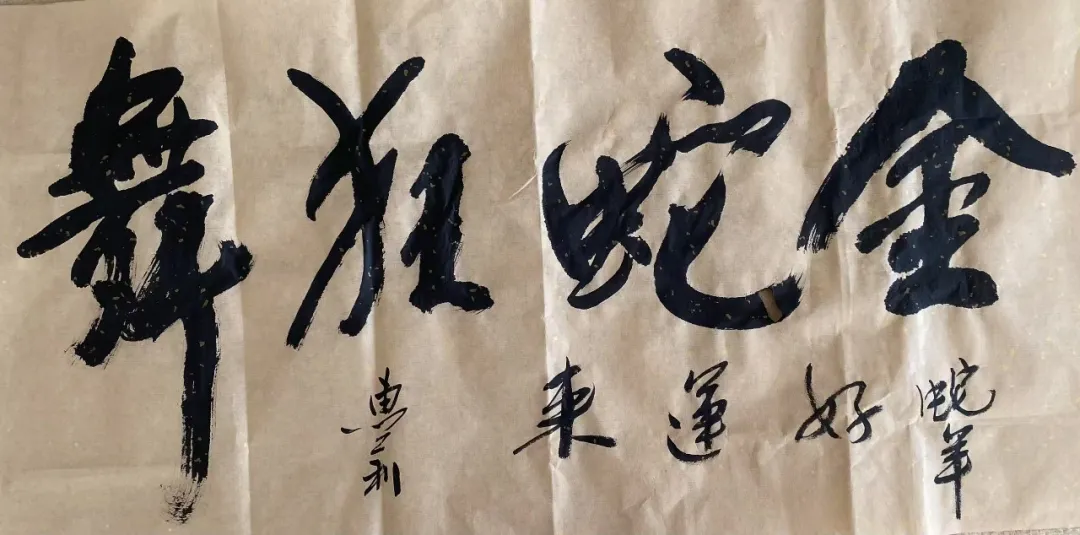 金蛇狂舞
蛇年
好運来
惠利